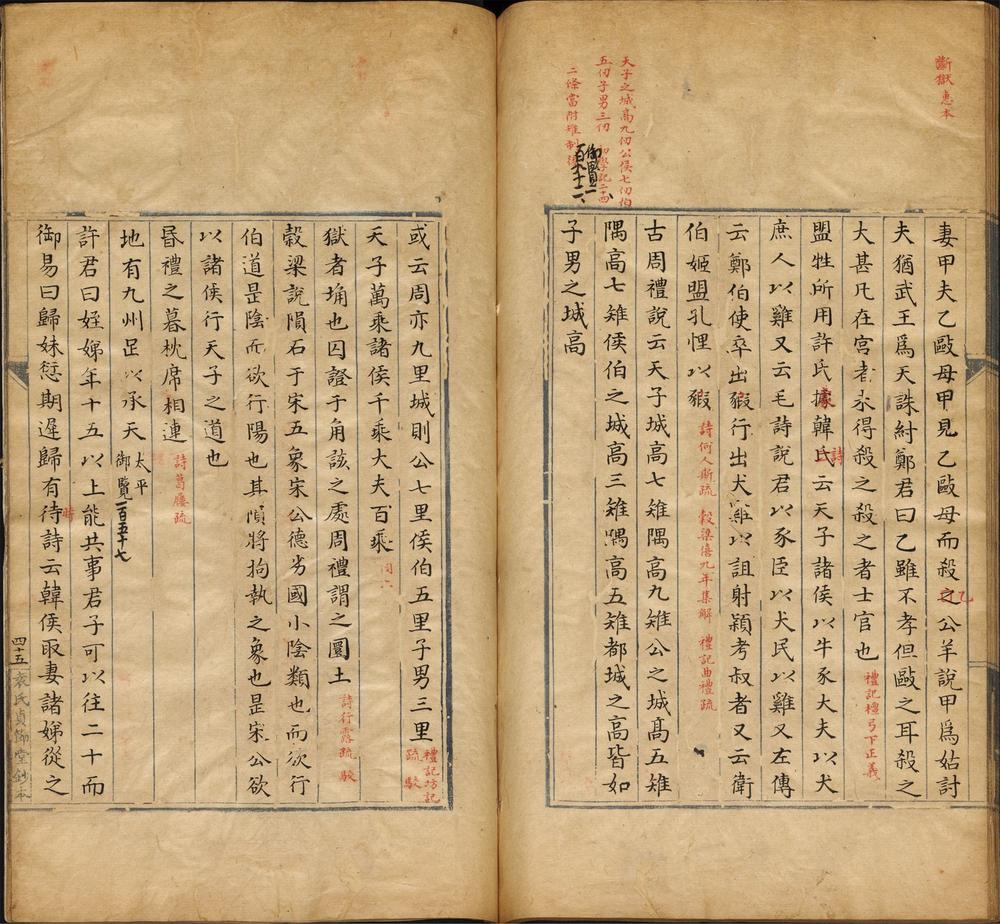 斷獄惠本
天子之城高九仞公侯七仞伯
五仞子男三仞 初學記二十四
二條當附雉制後
御覽一
百九十二
妻甲夫乙毆母甲見乙毆母而殺之公羊說甲爲姑討
乙
夫猶武王爲天誅紂鄭君曰乙雖不孝但毆之耳殺之
大甚凡在宮者未得殺之殺之者士官也 禮記檀弓下正義
盟牲所用許氏據韓氏云天子諸侯以牛豕大夫以犬
詩
庶人以雞又云毛詩說君以豕臣以犬民以雞又左傳
云鄭伯使卒出豭行出犬雞以詛射潁考叔者又云衛
伯姬盟孔悝以豭 詩何人斯疏 穀梁僖九年集解 禮記曲禮疏
古周禮說云天子城高七雉隅高九雉公之城高五雉
隅高七雉侯伯之城高三雉隅高五雉都城之高皆如
子男之城高
或云周亦九里城則公七里侯伯五里子男三里 禮記坊記
疏 駮
天子萬乘諸侯千乘大夫百乘 同六
獄者埆也囚證于角該之處周禮謂之圜土 詩行露疏 駮
穀梁說隕石于宋五象宋公德劣國小陰類也而欲行
伯道是陰而欲行陽也其隕將拘執之象也是宋公欲
以諸侯行天子之道也
昏禮之暮枕席相連 詩葛屨疏
地有九州足以承天 太平
御覽一百五十七
許君曰姪娣年十五以上能共事君子可以往二十而
御易曰歸妹愆期遲歸有待詩云韓侯取妻諸娣從之
時
四十五 袁氏貞節堂鈔本